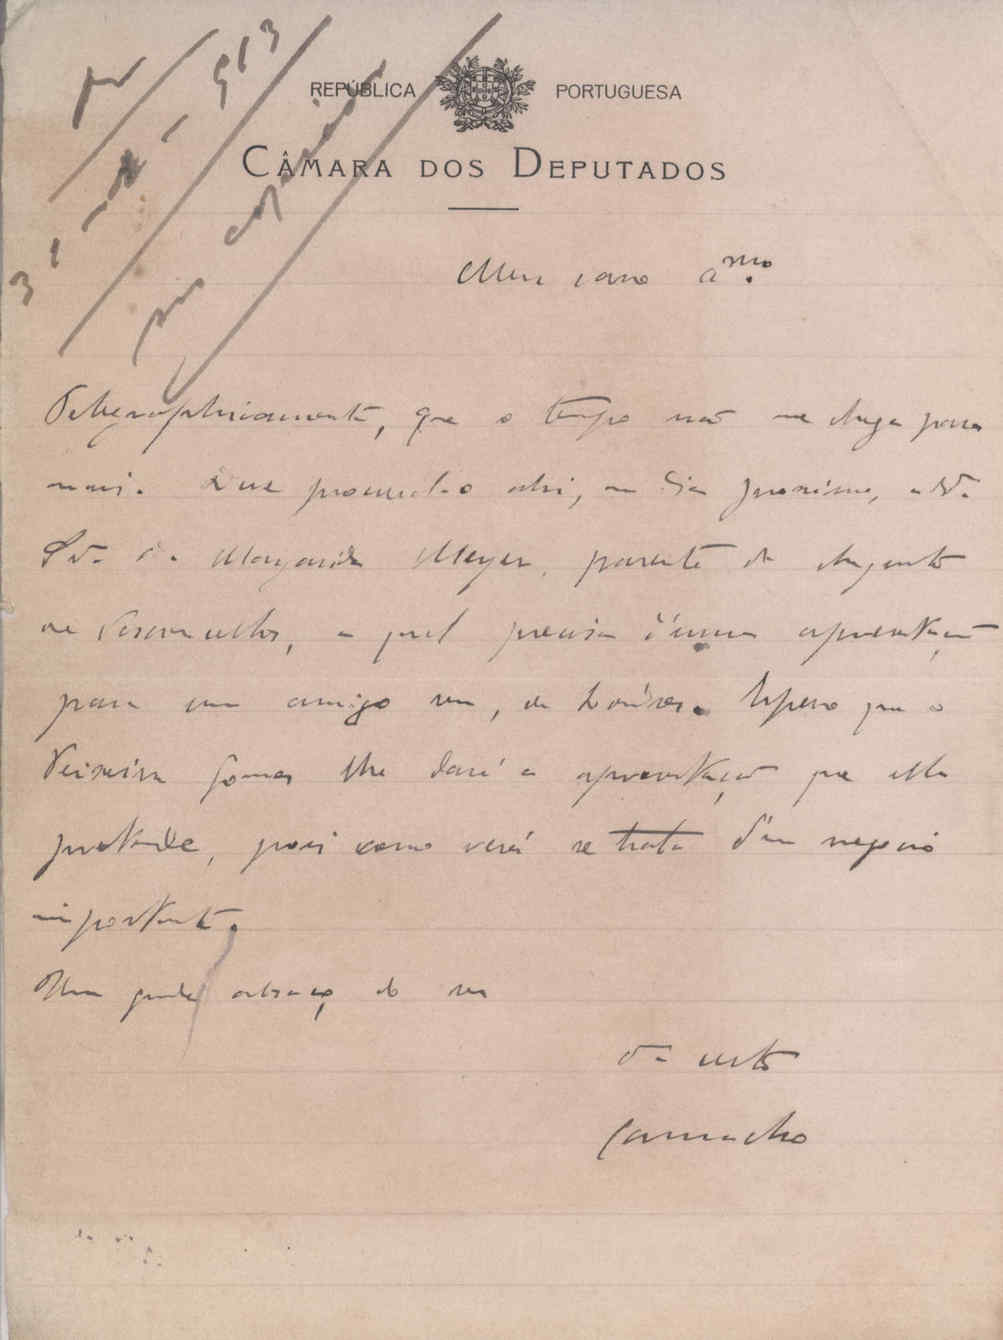 REPÚBLICA PORTUGUESA
CÂMARA DOS DEPUTADOS
913
3
Meu caro am.º
Telegraphicamente, que o tempo não me chega para
mais. Deve procural-o ahi, um dia proximo,
Margarida Meyer, parente do Augusto
de Vasconcellos, a qual precisa d'uma apresentação
para um amigo seu, de Londres. Espero que o
Teixeira Gomes lhe dará a apresentação que ella
pretende, pois como verá se trata d'um negocio
importante.
Um grande abraço do seu
Camacho